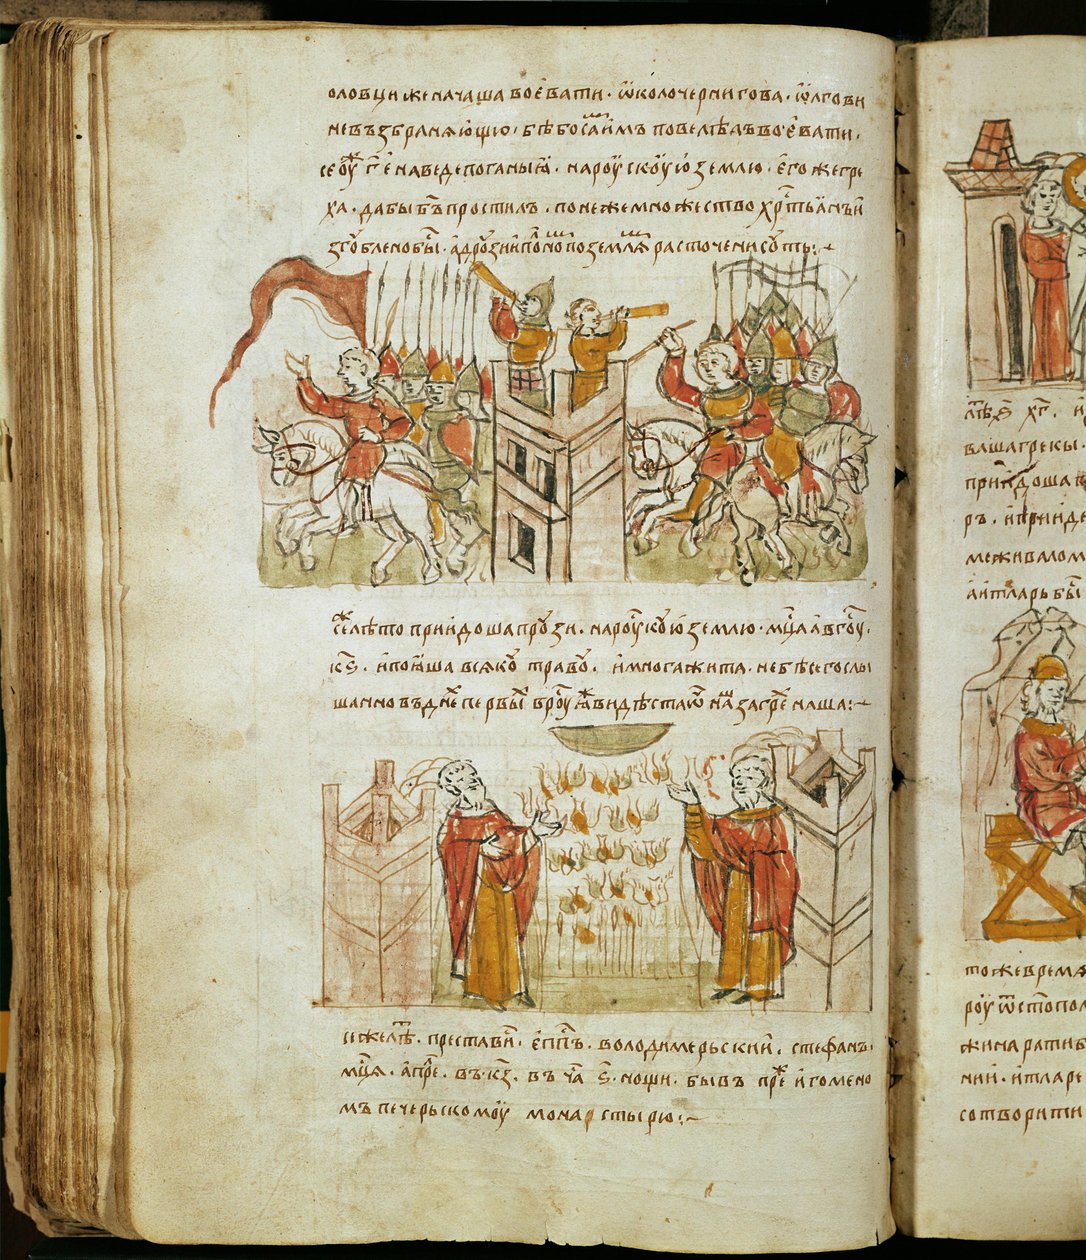 оловци же начаша воевати · ѿколо чернигова · ѡлгови
не възбраняющю · бѣ бо самъ имъ повелѣлъ воевати ·
се оуже г҃ е наведе поганыꙗ · на роускоую землю · его же грѣ
ха · дабы б҃ъ простилъ · понеже множество хрс҃тьꙗнъ
изгоублено бы҃ · а дроузии полонено по землѧ расточени соуть :~
се же лѣто приидоша проузи · на роускоую землю · мц҃а августа ·
к҃ѕ · и поꙗша всякоу травоу · и многа жита · не бѣ сего слы
шанно въ днехъ первых в роусѣ ꙗже видѣста ѿ наша за грехи наша :~
се же лѣто · преставис · еп҃пъ · володимерьский · стефанъ ·
мц҃я · апре · въ · к҃з · в ъ ча ѕ҃ · нощи · бывъ преже игомено
мъ печерьскомоу монастырю :~
лѣт ѕ҃ х҃г ·
ваша греки
приидоша
ръ · и приде
межи валом
а итларь бы
то же время
роу ѿ с҃топол
жи на ратиб
ний · итларе
сотворити